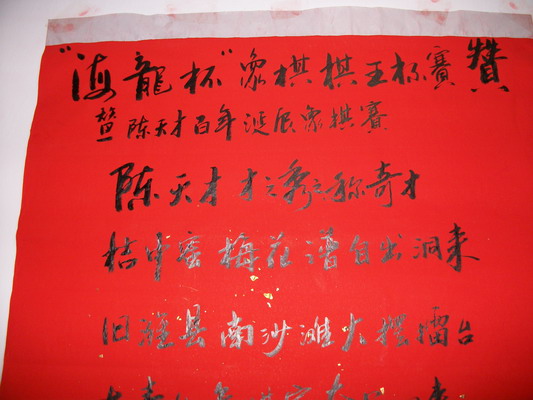 "海龍杯"象棋棋王杯賽贊
暨陈天才百年诞辰象棋賽
陈天才才之秀之称奇才
桔中蜜梅花谱自出洞来
旧潍县南沙滩大摆擂台